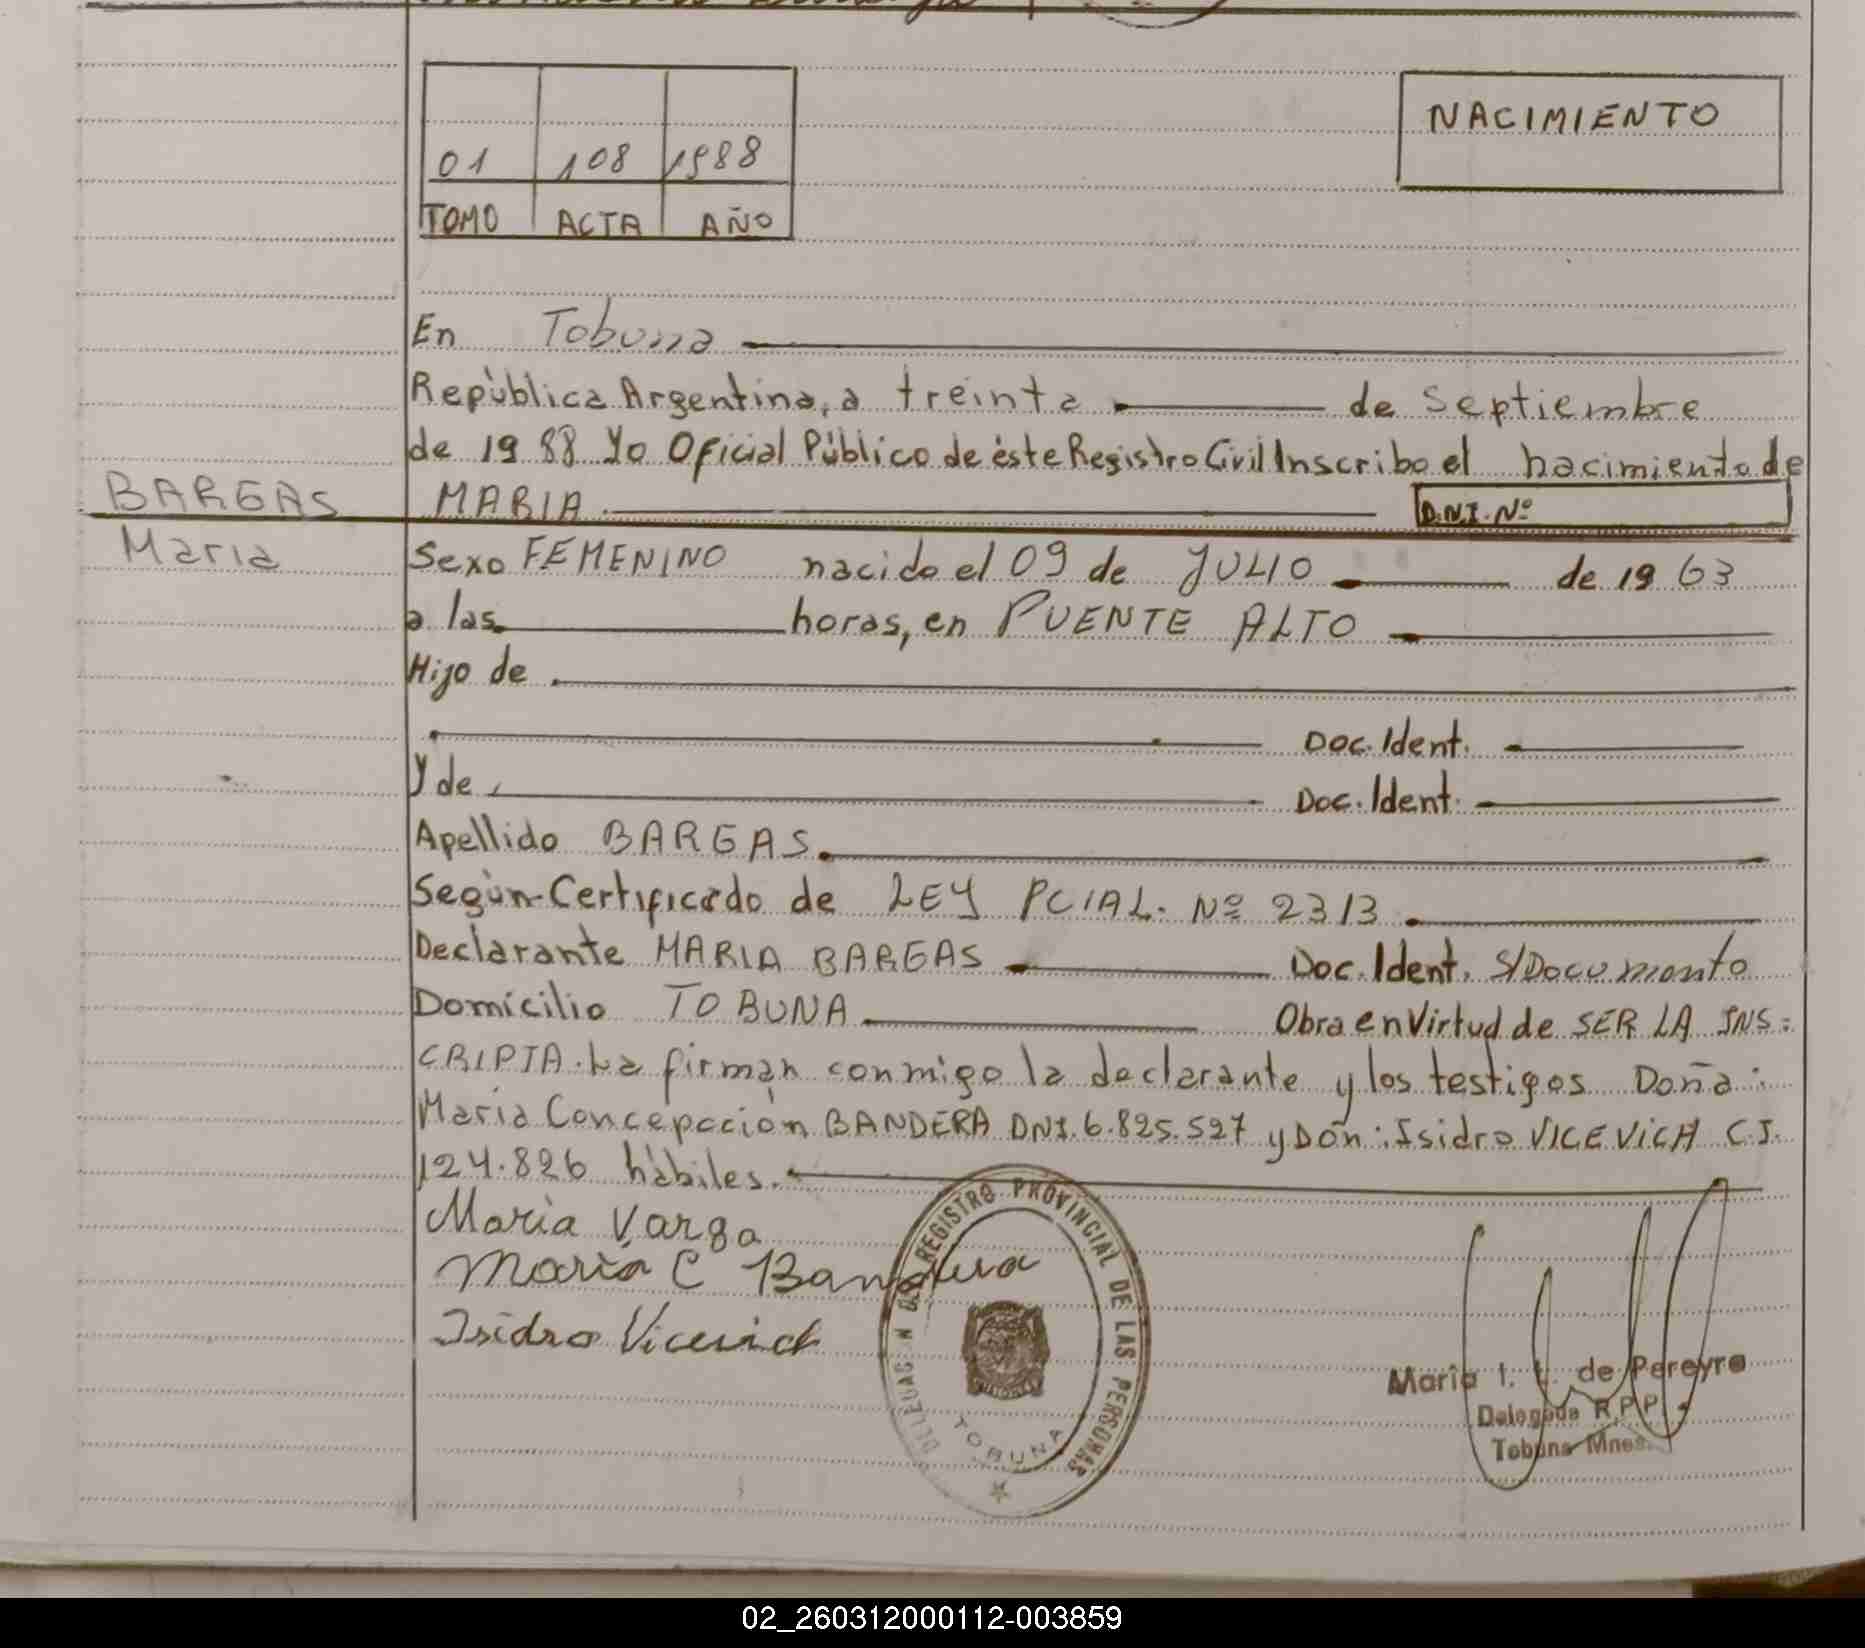 01 108 1988
TOMO ACTA AÑO
NACIMIENTO
En Tobuna
República Argentina, a treinta de Septiembre
de 1988 Yo Oficial Público de éste Registro Civil Inscribo el nacimiento de
BARGAS MARIA D.N.I. Nº
Maria
Sexo FEMENINO nacido el 09 de JULIO de 1963
a las horas, en PUENTE ALTO
Hijo de
Doc. Ident.
Y de Doc. Ident.
Apellido BARGAS
Según Certificado de LEY PCIAL. Nº 2313
Declarante MARIA BARGAS Doc. Ident. S/Documento
Domicilio TOBUNA Obra en Virtud de SER LA INS=
CRIPTA. La firman conmigo la declarante y los testigos Doña:
Maria Concepcción BANDERA DNI. 6.825.527 y Dón: Isidro VICEVICH C.I.
124.826 hábiles.
Maria Varga
Maria C Bandera
Isidro Vicevich
DELEGACION DEL REGISTRO PROVINCIAL DE LAS PERSONAS
TOBUNA
Maria I. de Pereyra
Delegada R.P.P.
Tobuna Mnes.
02_260312000112-003859